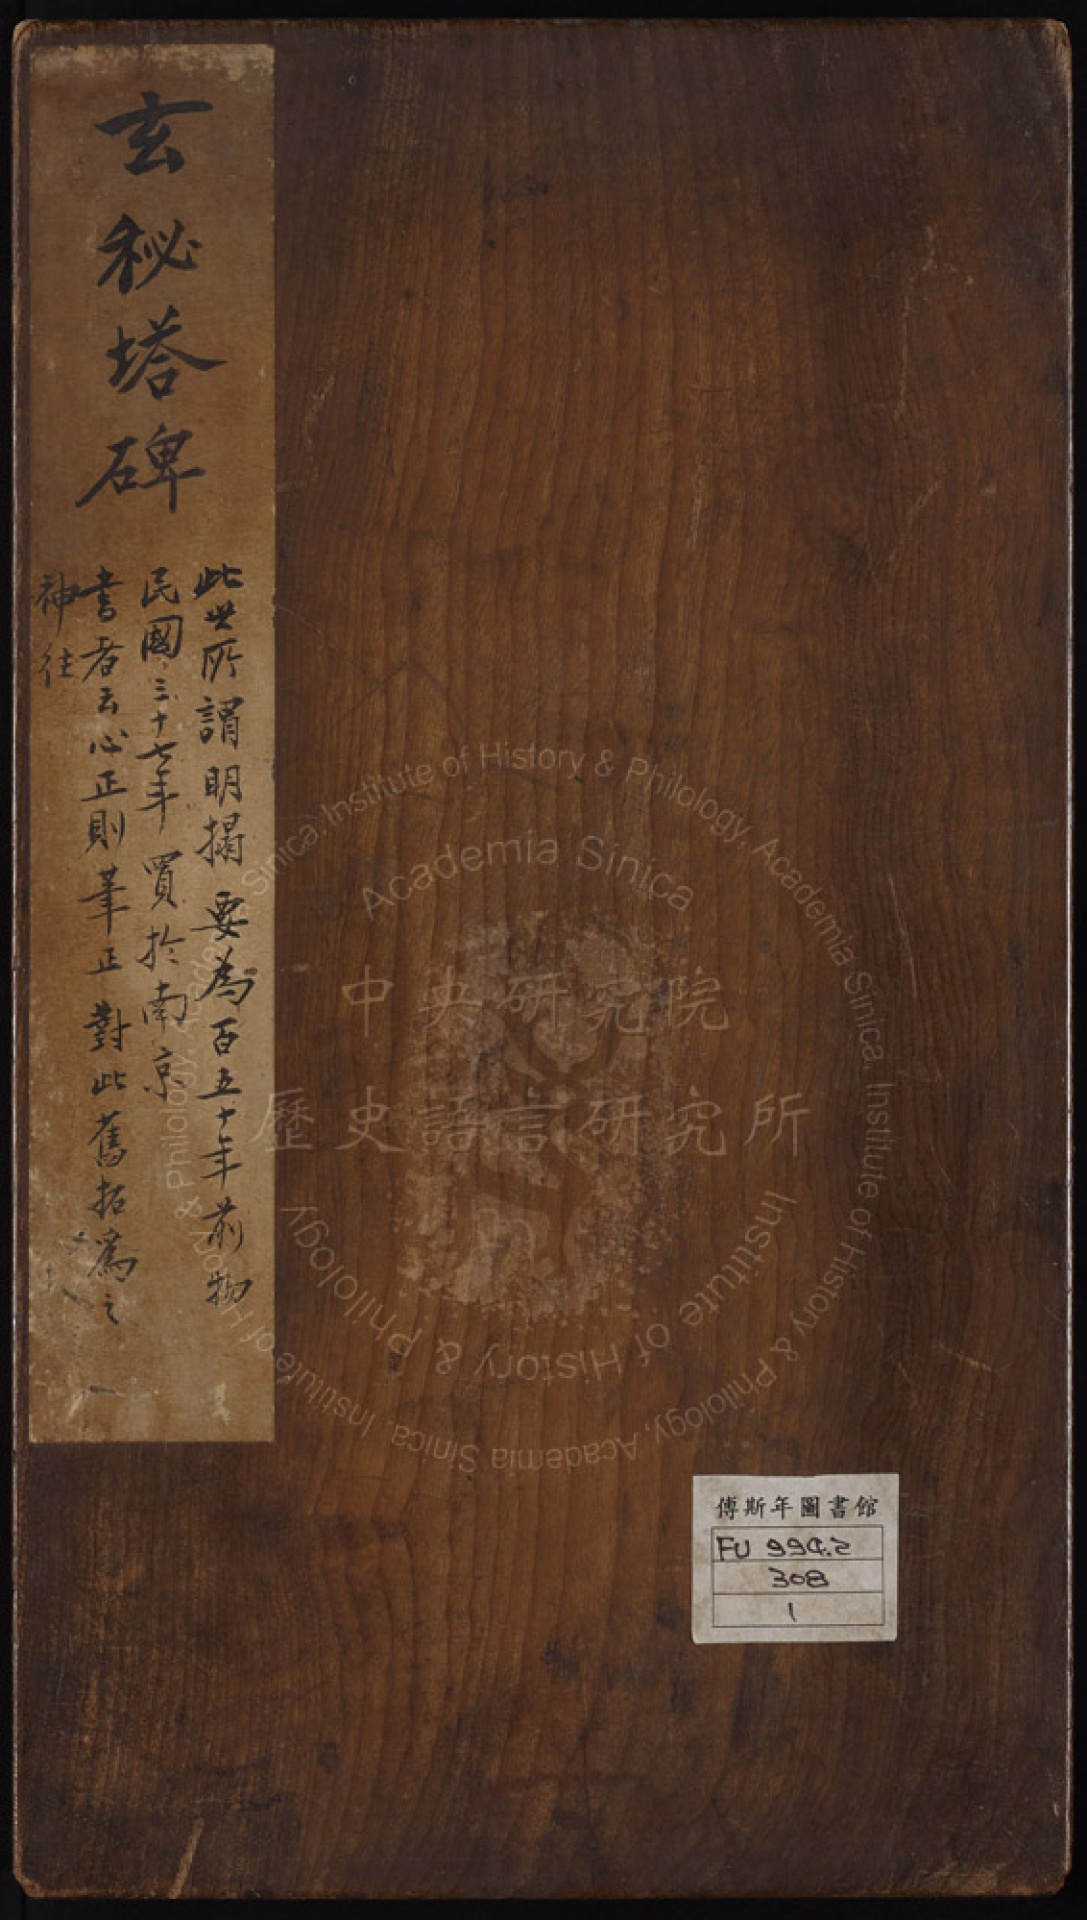 玄秘塔碑
此世所謂明搨要為百五十年前物
民國三十七年買於南京
書者云心正則筆正對此舊拓為之
神往
中央研究院
歷史語言研究所
Academia Sinica
Institute of History & Philology
Institute of History & Philology, Academia Sinica. Institute of History & Philology, Academia Sinica. Institute of History & Philology, Academia Sinica.
傅斯年圖書館
FU 994.2
308
1